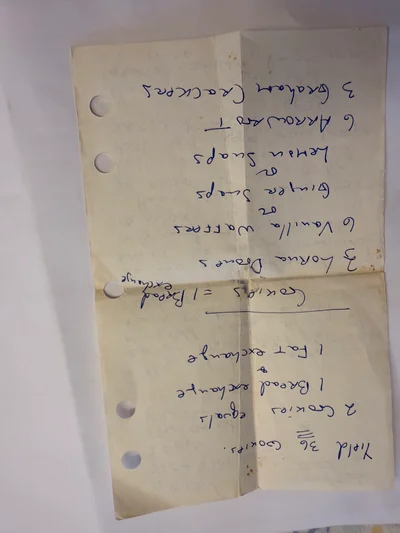 Yield 36 Cookies.
2 Cookies equals
1 Bread exchange
&
1 Fat exchange
Cookies = 1 Bread
exchange
3 Lorna Doones
6 Vanilla Waffars
or
Ginger Snaps
or
Lemon Snaps
6 Arrowroot
3 Graham Crackers